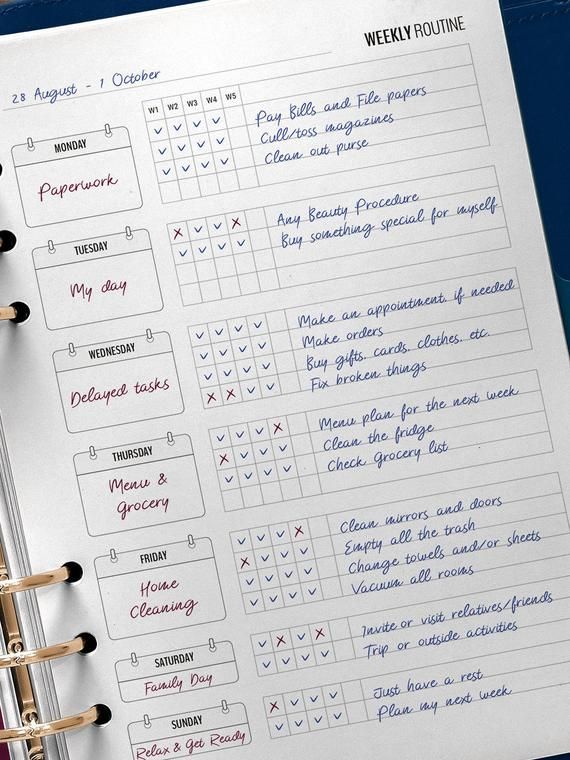 WEEKLY ROUTINE
28 August - 1 October
W1 W2 W3 W4 W5
MONDAY
Paperwork
✓ ✓ ✓ ✓ Pay Bills and File papers
✓ ✓ ✓ ✓ Cull/toss magazines
✓ ✓ ✓ ✓ Clean out purse
TUESDAY
My day
X ✓ ✓ X Any Beauty Procedure
✓ ✓ ✓ ✓ Buy something special for myself
WEDNESDAY
Delayed tasks
✓ ✓ ✓ ✓ Make an appointment, if needed
✓ ✓ ✓ ✓ Make orders
✓ ✓ ✓ ✓ Buy gifts, cards, clothes, etc.
X X ✓ ✓ Fix broken things
THURSDAY
Menu &
Grocery
✓ ✓ ✓ X Menu plan for the next week
X ✓ ✓ ✓ Clean the fridge
✓ ✓ ✓ ✓ Check Grocery list
FRIDAY
Home
Cleaning
✓ ✓ ✓ X Clean mirrors and doors
X ✓ ✓ ✓ Empty all the trash
✓ ✓ ✓ ✓ Change towels and/or sheets
✓ ✓ ✓ ✓ Vacuum all rooms
SATURDAY
Family Day
✓ X ✓ X Invite or visit relatives/friends
✓ ✓ ✓ ✓ Trip or outside activities
SUNDAY
Relax & Get Ready
X ✓ ✓ ✓ Just have a rest
✓ ✓ ✓ ✓ Plan my next week